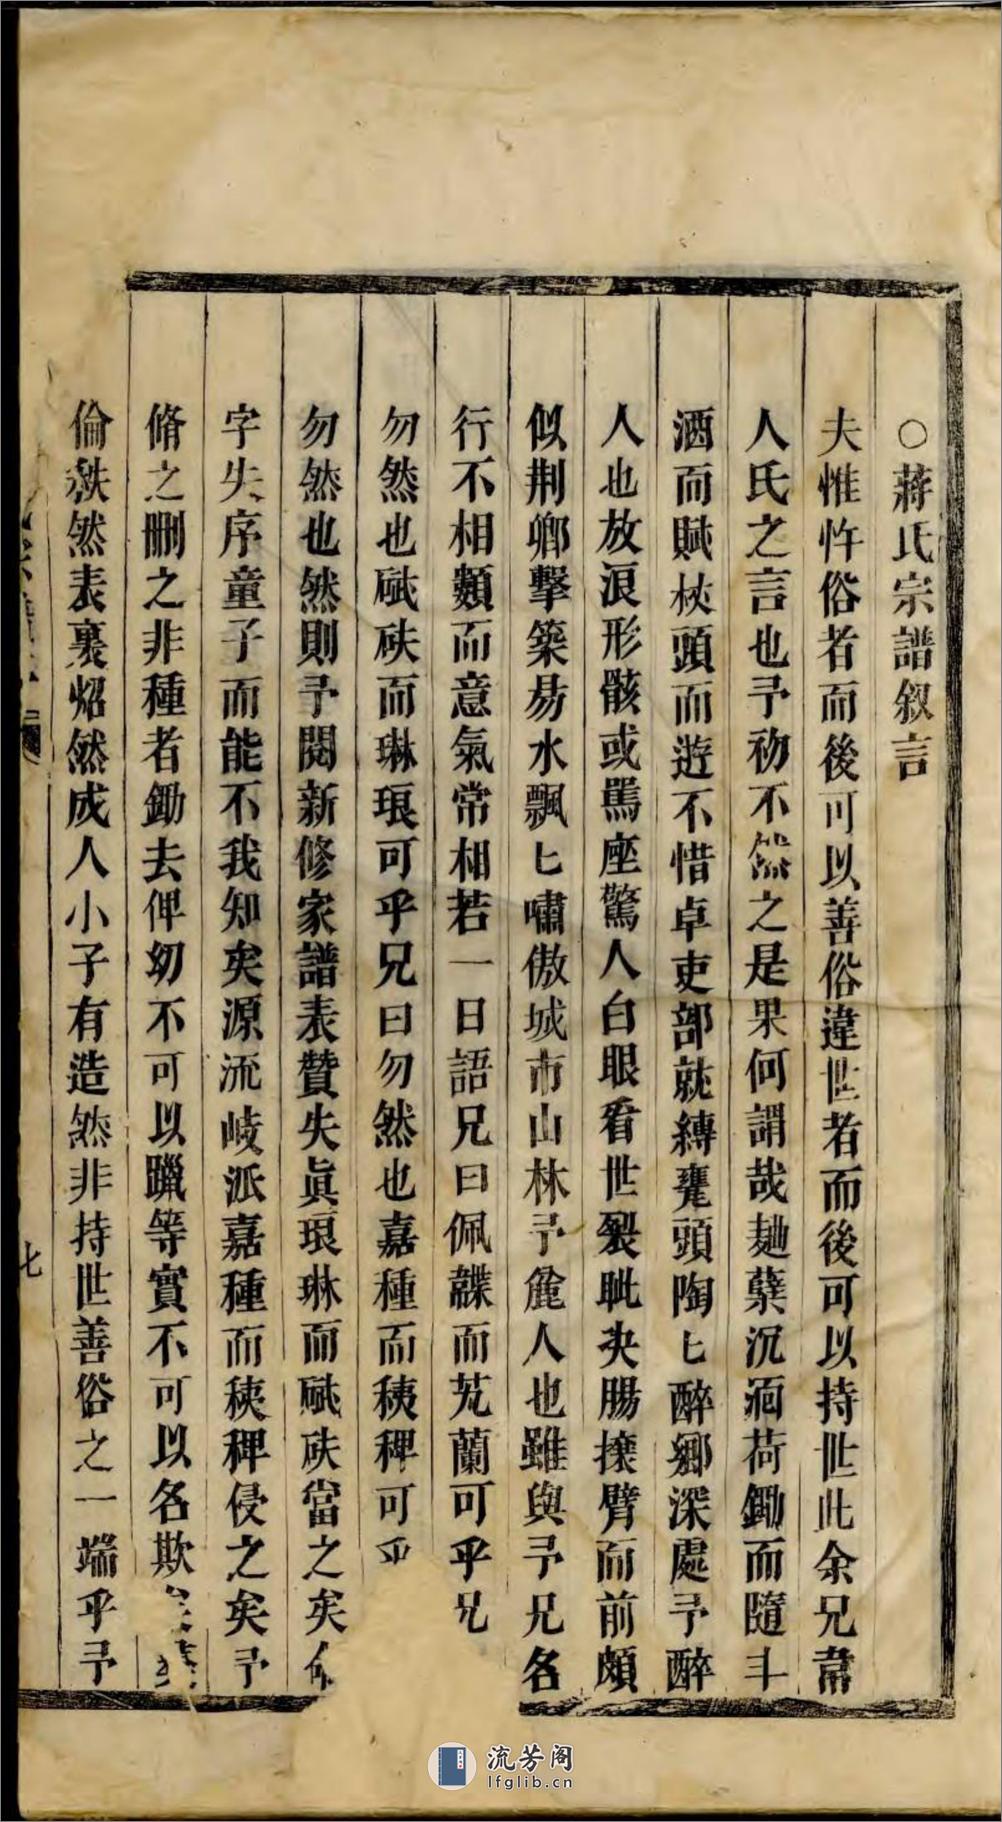 ○蔣氏宗譜叙言
夫惟忤俗者而後可以善俗違世者而後可以持世此余兄䓕
人氏之言也予初不然之是果何謂哉麯蘖沉湎荷鋤而隨斗
酒而賦杖頭而遊不惜卓吏部就縛甕頭陶匕醉鄉深處予醉
人也放浪形骸或罵座驚人白眼看世裂眦決腸攘臂而前頗
似荆卿擊築易水飄匕嘯傲城市山林予麄人也雖與予兄名
行不相類而意氣常相若一日語兄曰佩韘而芄蘭可乎兄
勿然也碔砆而琳琅可乎兄曰勿然也嘉種而稊稗可乎
勿然也然則予閱新修家譜表贊失眞琅琳而碔砆當之矣
字失序童子而能不我知矣源流岐派嘉種而稊稗侵之矣予
脩之删之非種者鋤去俾幼不可以躐等實不可以名欺
倫秩然表裏炤然成人小子有造然非持世善俗之一端乎予
七
流芳阁
lfglib.cn